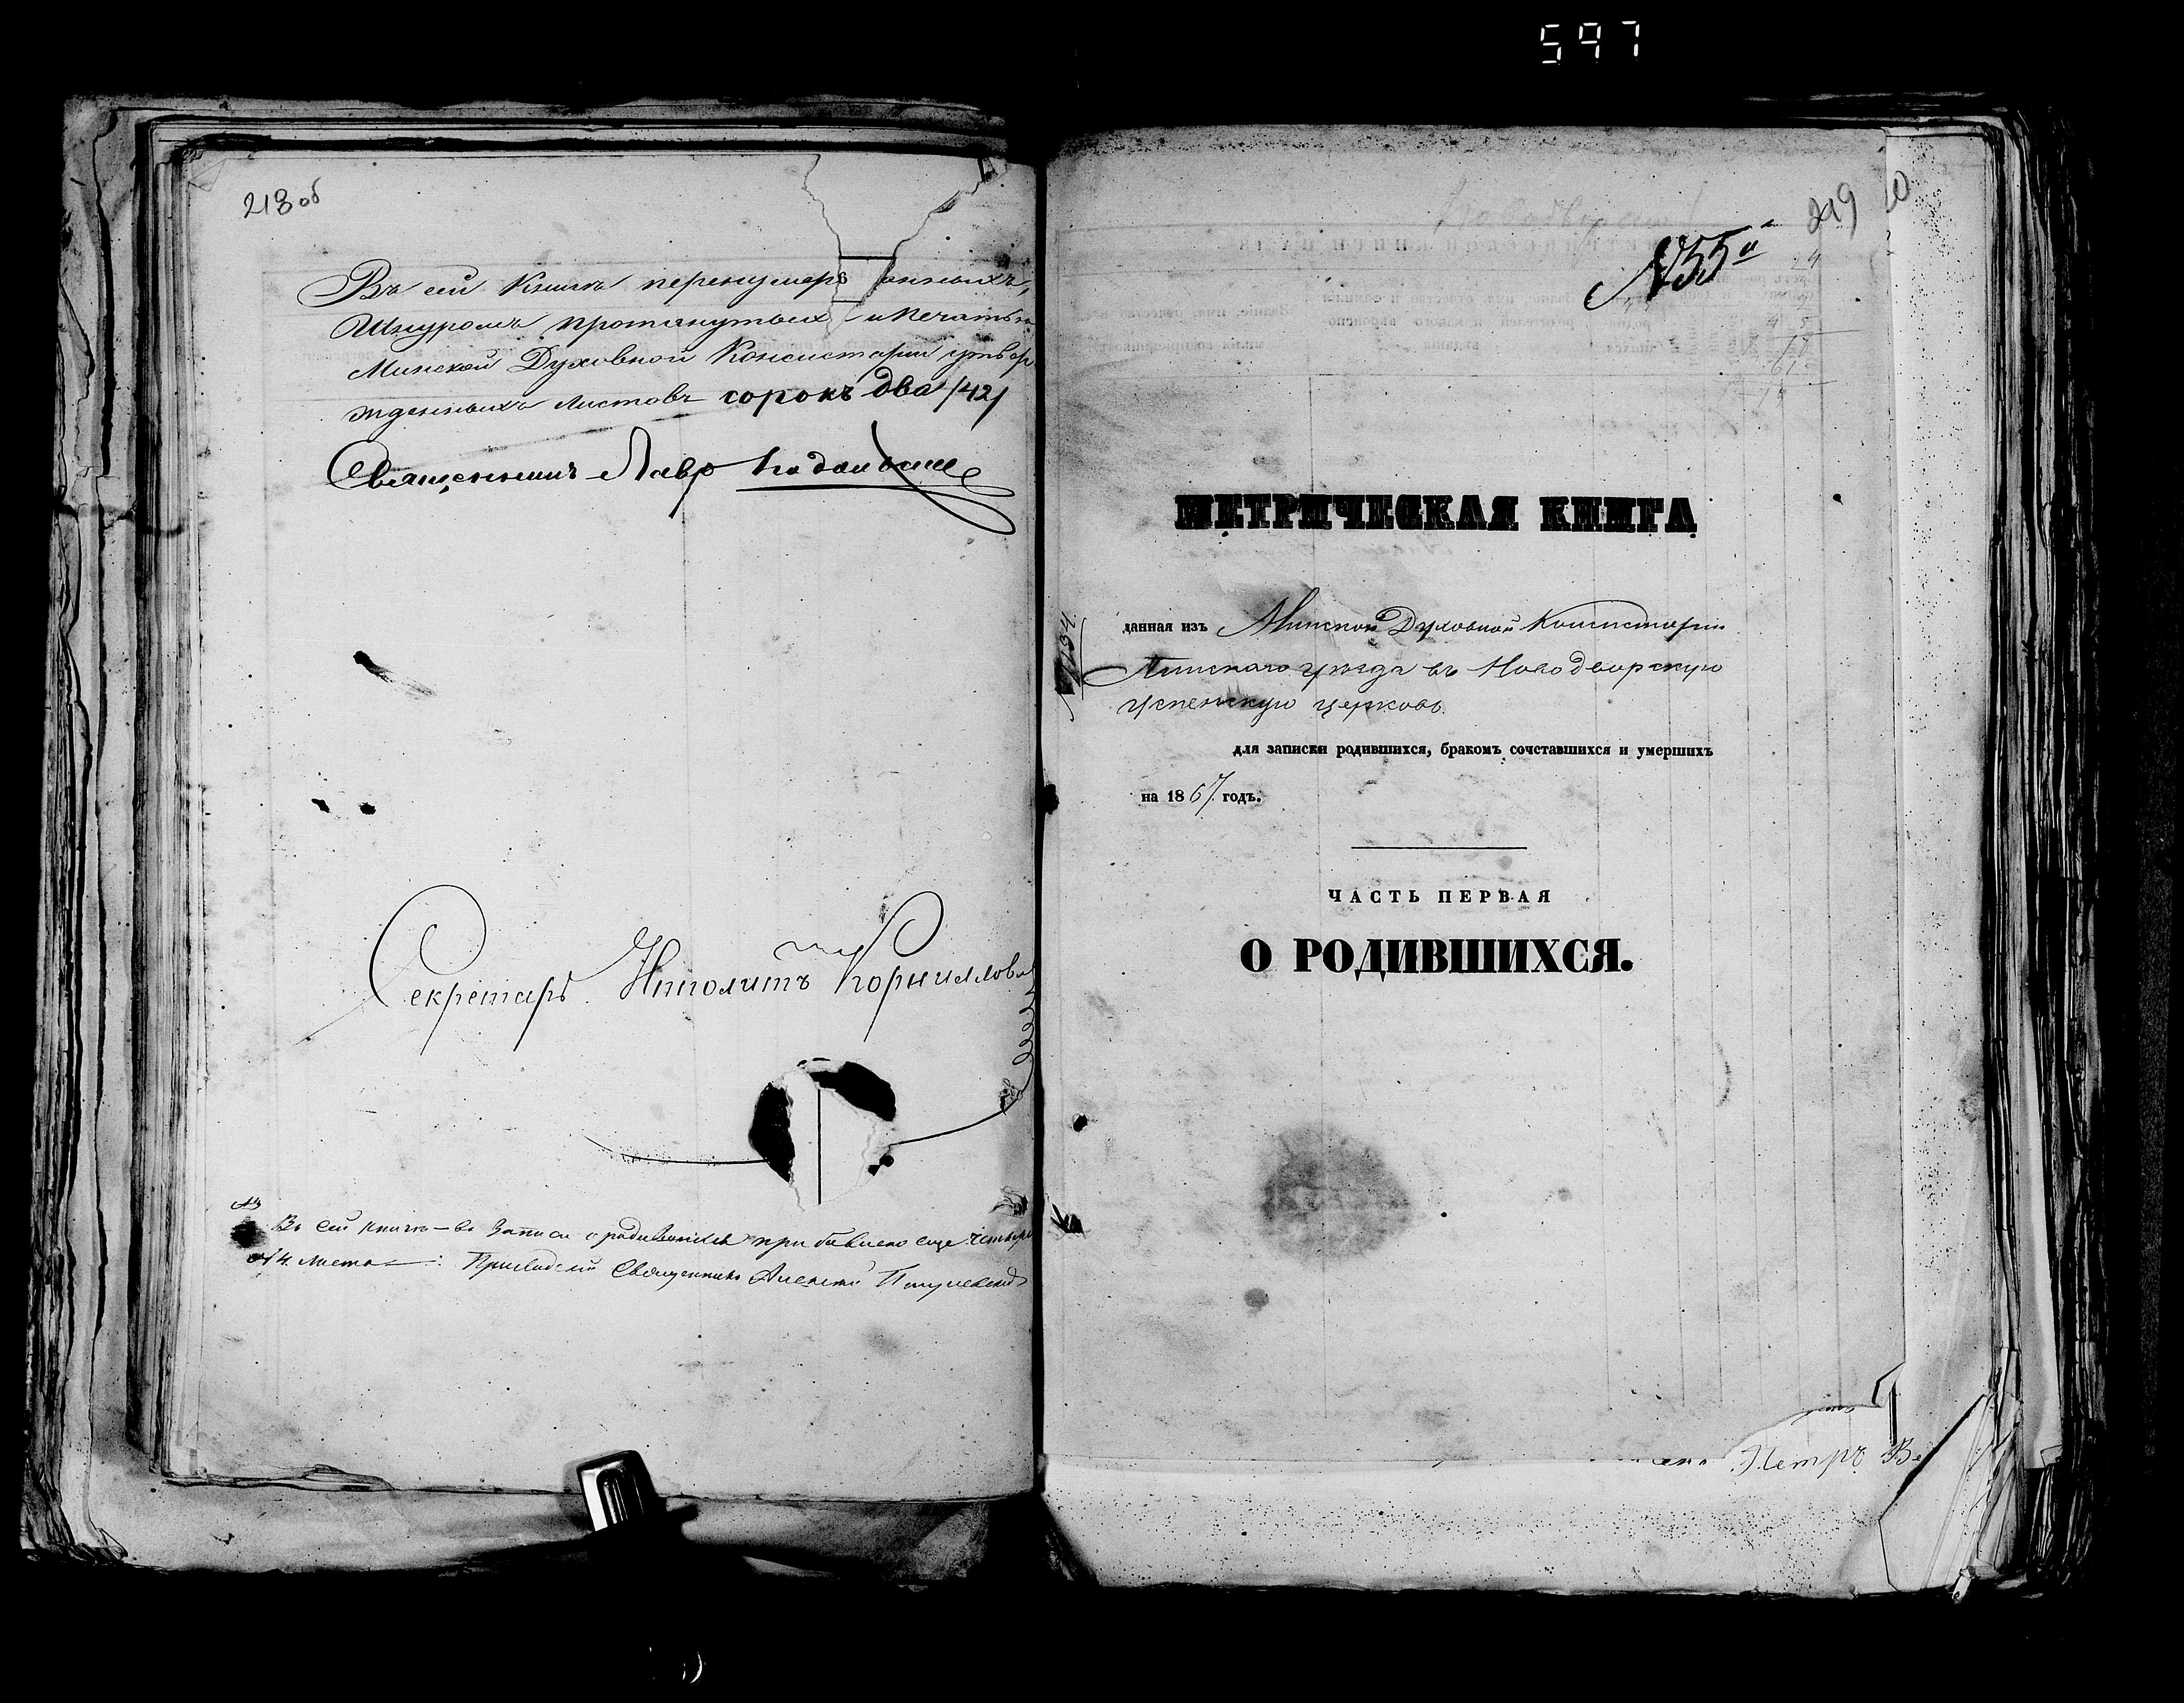 597
218 об
Въ сей Книгѣ перенумерованныхъ,
Шнуромъ протянутыхъ и печатью
Минской Духовной Консисторіи утвер
жденныхъ листовъ сорокъ два /42/
Священникъ Лавръ
Секретарь Ипполитъ Корниллови
Въ сей книгѣ – въ записи о родившихся прибавлено еще четыре
4. листа Священникъ Алексѣй
219
№ 55й
МЕТРИЧЕСКАЯ КНИГА
данная изъ Минской Духовной Консисторіи
Пинскаго уѣзда въ Новодворскую
Успенскую церковь.
для записки родившихся, бракомъ сочетавшихся и умершихъ
на 1867 годъ.
ЧАСТЬ ПЕРВАЯ
О РОДИВШИХСЯ.
Петръ Ве